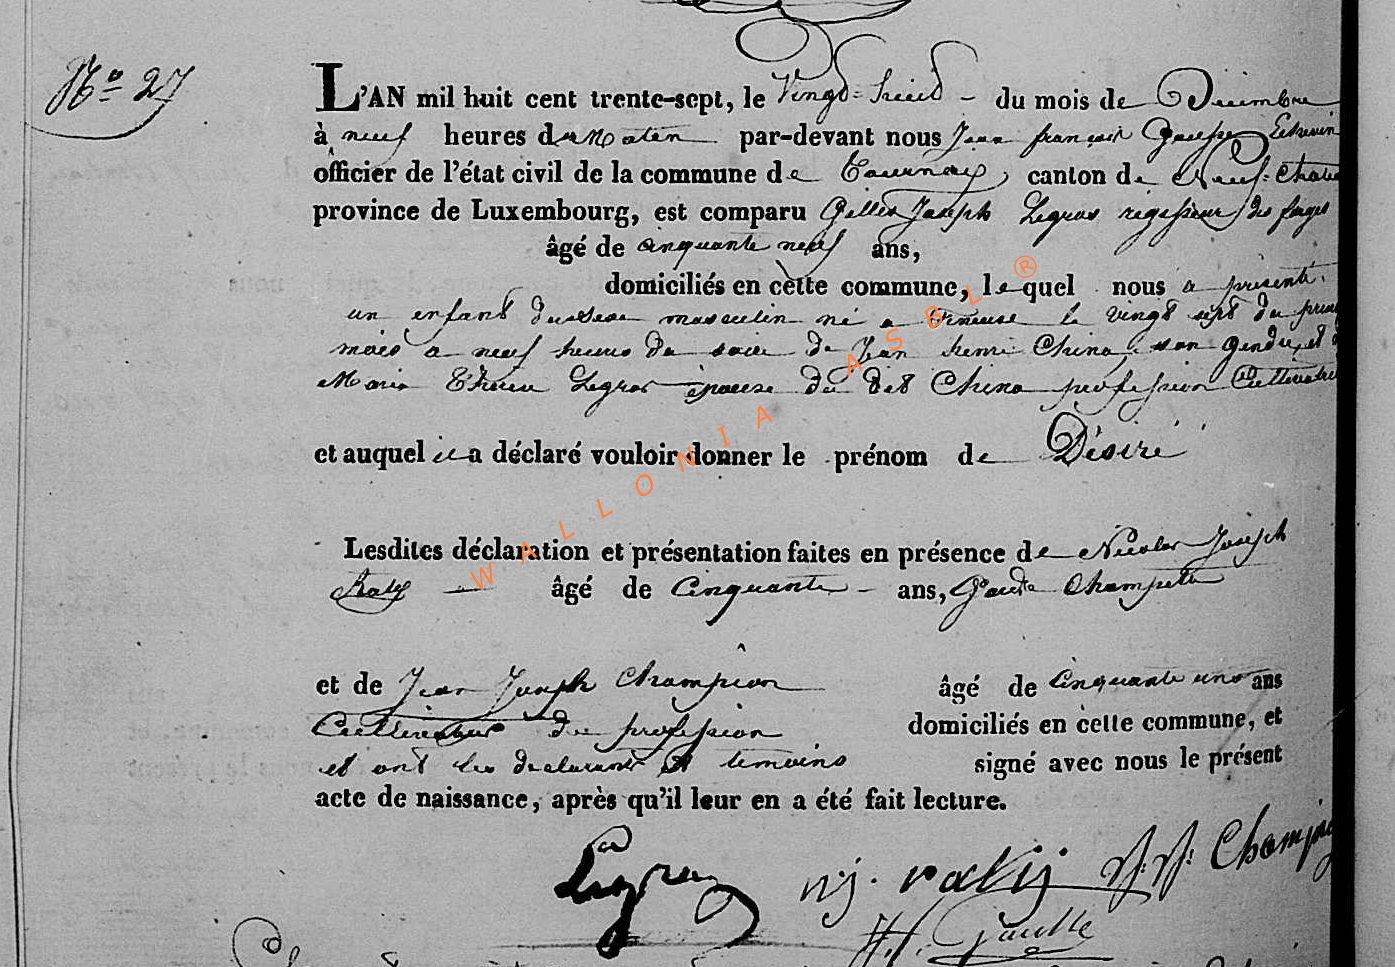 N° 27
L'AN mil huit cent trente-sept, le Vingt-huit du mois de Décembre
à neuf heures du Matin par-devant nous Jean françois Echevin
officier de l'état civil de la commune de Tournay, canton de Neuf-Chateau
province de Luxembourg, est comparu Gilles Joseph Legros regisseur des forges
âgé de cinquante neuf ans,
domiciliés en cette commune, lequel nous a présenté
un enfant du sexe masculin né a le vingt sept du
mois a neuf heures du soir de Jean henri China, son Gendre, et
Maria Thérèse Legros épouse du dit China profession Cultivatrice
et auquel il a déclaré vouloir donner le prénom de Désiré
Lesdites déclaration et présentation faites en présence de Nicolas Joseph
âgé de Cinquante ans, Garde Champetre
et de Jean Joseph Champion âgé de Cinquante uns ans
Cultivateur de profession domiciliés en cette commune, et
et ont les declarant et temoins signé avec nous le présent
acte de naissance, après qu'il leur en a été fait lecture.
Legros
J. J. Champion
WALLONIA ASBL ®